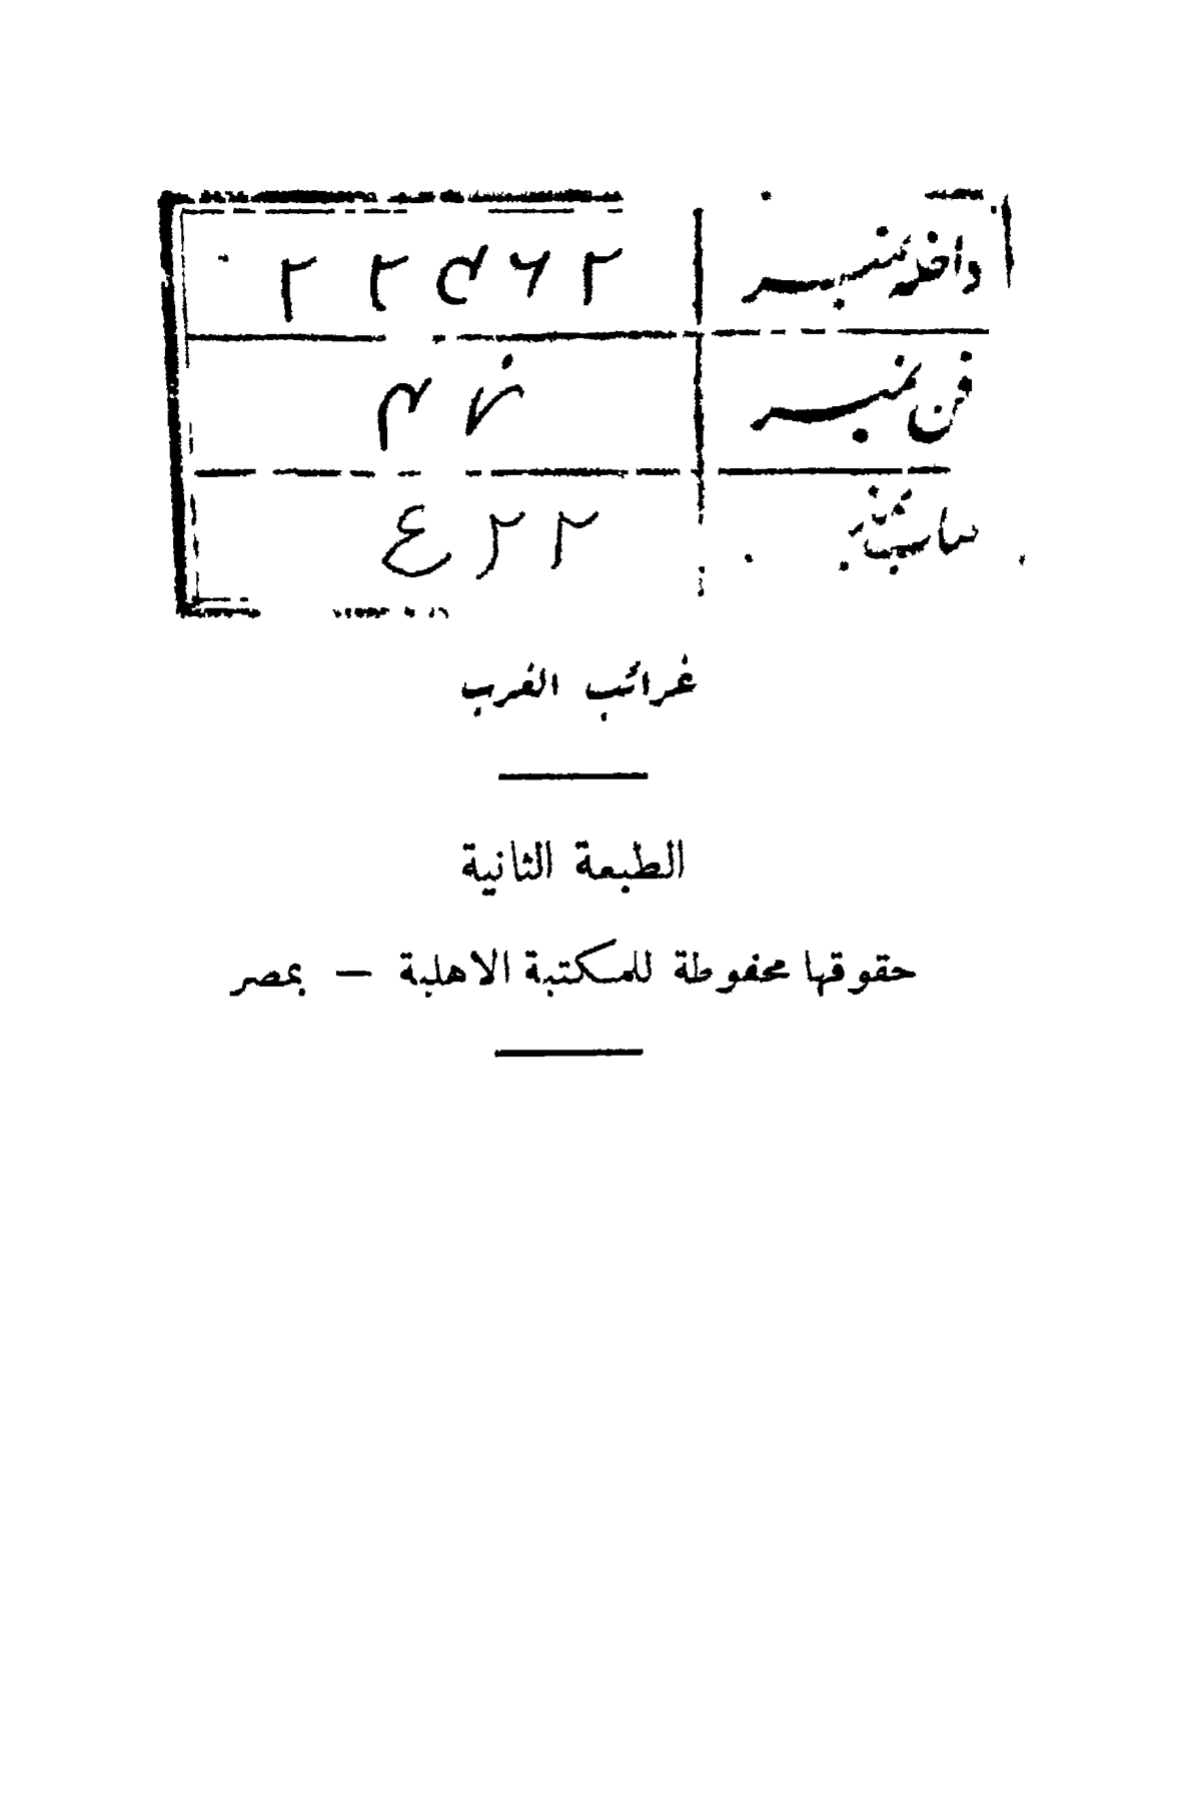 داخلہ نمبر
فن نمبر
غرائب الغرب
الطبعة الثانية
حقوقها محفوظة للمكتبة الاهلية — بمصر